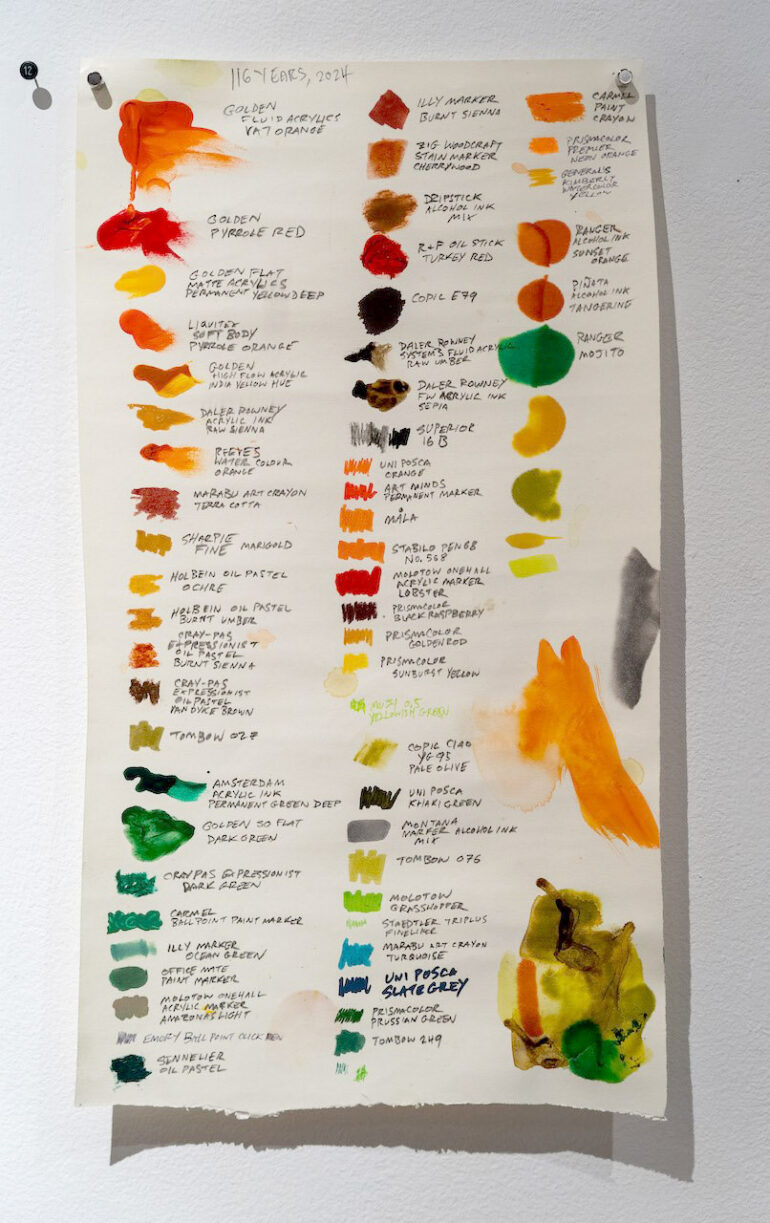 12
116 YEARS, 2024
GOLDEN
FLUID ACRYLICS
VAT ORANGE
GOLDEN
PYRROLE RED
GOLDEN FLAT
MATTE ACRYLICS
PERMANENT YELLOW DEEP
LIQUITEX
SOFT BODY
PYRROLE ORANGE
GOLDEN
HIGH FLOW ACRYLIC
INDIA YELLOW HUE
DALER ROWNEY
ACRYLIC INK
RAW SIENNA
REEVES
WATER COLOUR
ORANGE
MARABU ART CRAYON
TERRA COTTA
SHARPIE
FINE MARIGOLD
HOLBEIN OIL PASTEL
OCHRE
HOLBEIN OIL PASTEL
BURNT UMBER
CRAY-PAS
EXPRESSIONIST
OIL PASTEL
BURNT SIENNA
CRAY-PAS
EXPRESSIONIST
OIL PASTEL
VAN DYKE BROWN
TOMBOW 027
AMSTERDAM
ACRYLIC INK
PERMANENT GREEN DEEP
GOLDEN SO FLAT
DARK GREEN
CRAYPAS EXPRESSIONIST
DARK GREEN
CARMEL
BALLPOINT PAINT MARKER
ILLY MARKER
OCEAN GREEN
OFFICE MATE
PAINT MARKER
MOLOTOW ONE4ALL
ACRYLIC MARKER
AMAZONAS LIGHT
EMORY BALL POINT CLICK PEN
SENNELIER
OIL PASTEL
ILLY MARKER
BURNT SIENNA
BIG WOODCRAFT
STAIN MARKER
CHERRYWOOD
DRIPSTICK
ALCOHOL INK
MIX
R+F OIL STICK
TURKEY RED
COPIC E79
DALER ROWNEY
SYSTEM 3 FLUID ACRYLIC
RAW UMBER
DALER ROWNEY
FW ACRYLIC INK
SEPIA
SUPERIOR
16 B
UNI POSCA
ORANGE
ART MINDS
PERMANENT MARKER
MÅLA
STABILO PEN68
NO. 568
MOLOTOW ONE4ALL
ACRYLIC MARKER
LOBSTER
PRISMACOLOR
BLACK RASPBERRY
PRISMACOLOR
GOLDENROD
PRISMACOLOR
SUNBURST YELLOW
MUJI 0.5
YELLOWISH GREEN
COPIC CIAO
YG 95
PALE OLIVE
UNI POSCA
KHAKI GREEN
MONTANA
MARKER ALCOHOL INK
MIX
TOMBOW 076
MOLOTOW
GRASSHOPPER
STAEDTLER TRIPLUS
FINELINER
MARABU ART CRAYON
TURQUOISE
UNI POSCA
SLATE GREY
PRISMACOLOR
PRUSSIAN GREEN
TOMBOW 249
CARMEL
PAINT
CRAYON
PRISMACOLOR
PREMIER
NEON ORANGE
GENERAL'S
KIMBERLY
WATERCOLOR
YELLOW
RANGER
ALCOHOL INK
SUNSET
ORANGE
PIÑATA
ALCOHOL INK
TANGERINE
RANGER
MOJITO